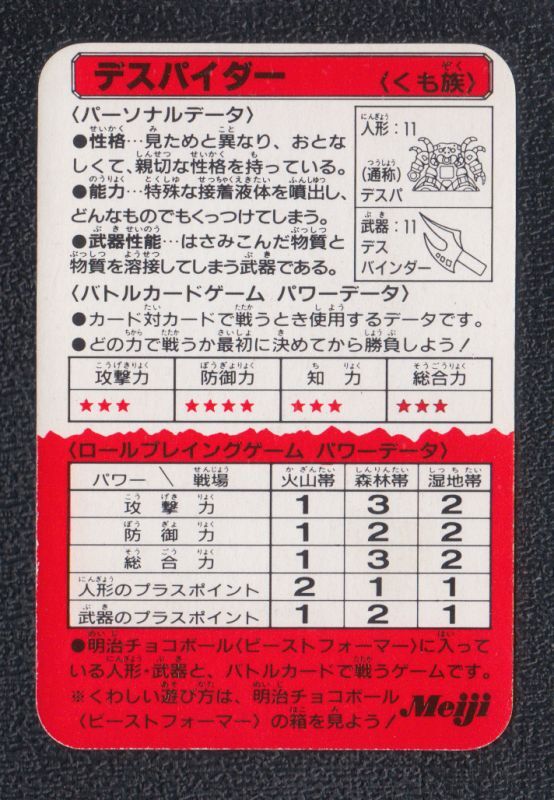 デスパイダー 〈くも族〉
〈パーソナルデータ〉
●性格…見ためと異なり、おとな
しくて、親切な性格を持っている。
●能力…特殊な接着液体を噴出し、
どんなものでもくっつけてしまう。
●武器性能…はさみこんだ物質と
物質を溶接してしまう武器である。
人形：11
(通称)
デスパ
武器：11
デス
バインダー
〈バトルカードゲーム パワーデータ〉
●カード対カードで戦うとき使用するデータです。
●どの力で戦うか最初に決めてから勝負しよう！
攻撃力 防御力 知力 総合力
★★★ ★★★★ ★★★ ★★★
〈ロールプレイングゲーム パワーデータ〉
パワー \ 戦場 火山帯 森林帯 湿地帯
攻撃力 1 3 2
防御力 1 2 2
総合力 1 3 2
人形のプラスポイント 2 1 1
武器のプラスポイント 1 2 1
●明治チョコボール〈ビーストフォーマー〉に入って
いる人形・武器と、バトルカードで戦うゲームです。
※くわしい遊び方は、明治チョコボール
〈ビーストフォーマー〉の箱を見よう！
Meiji